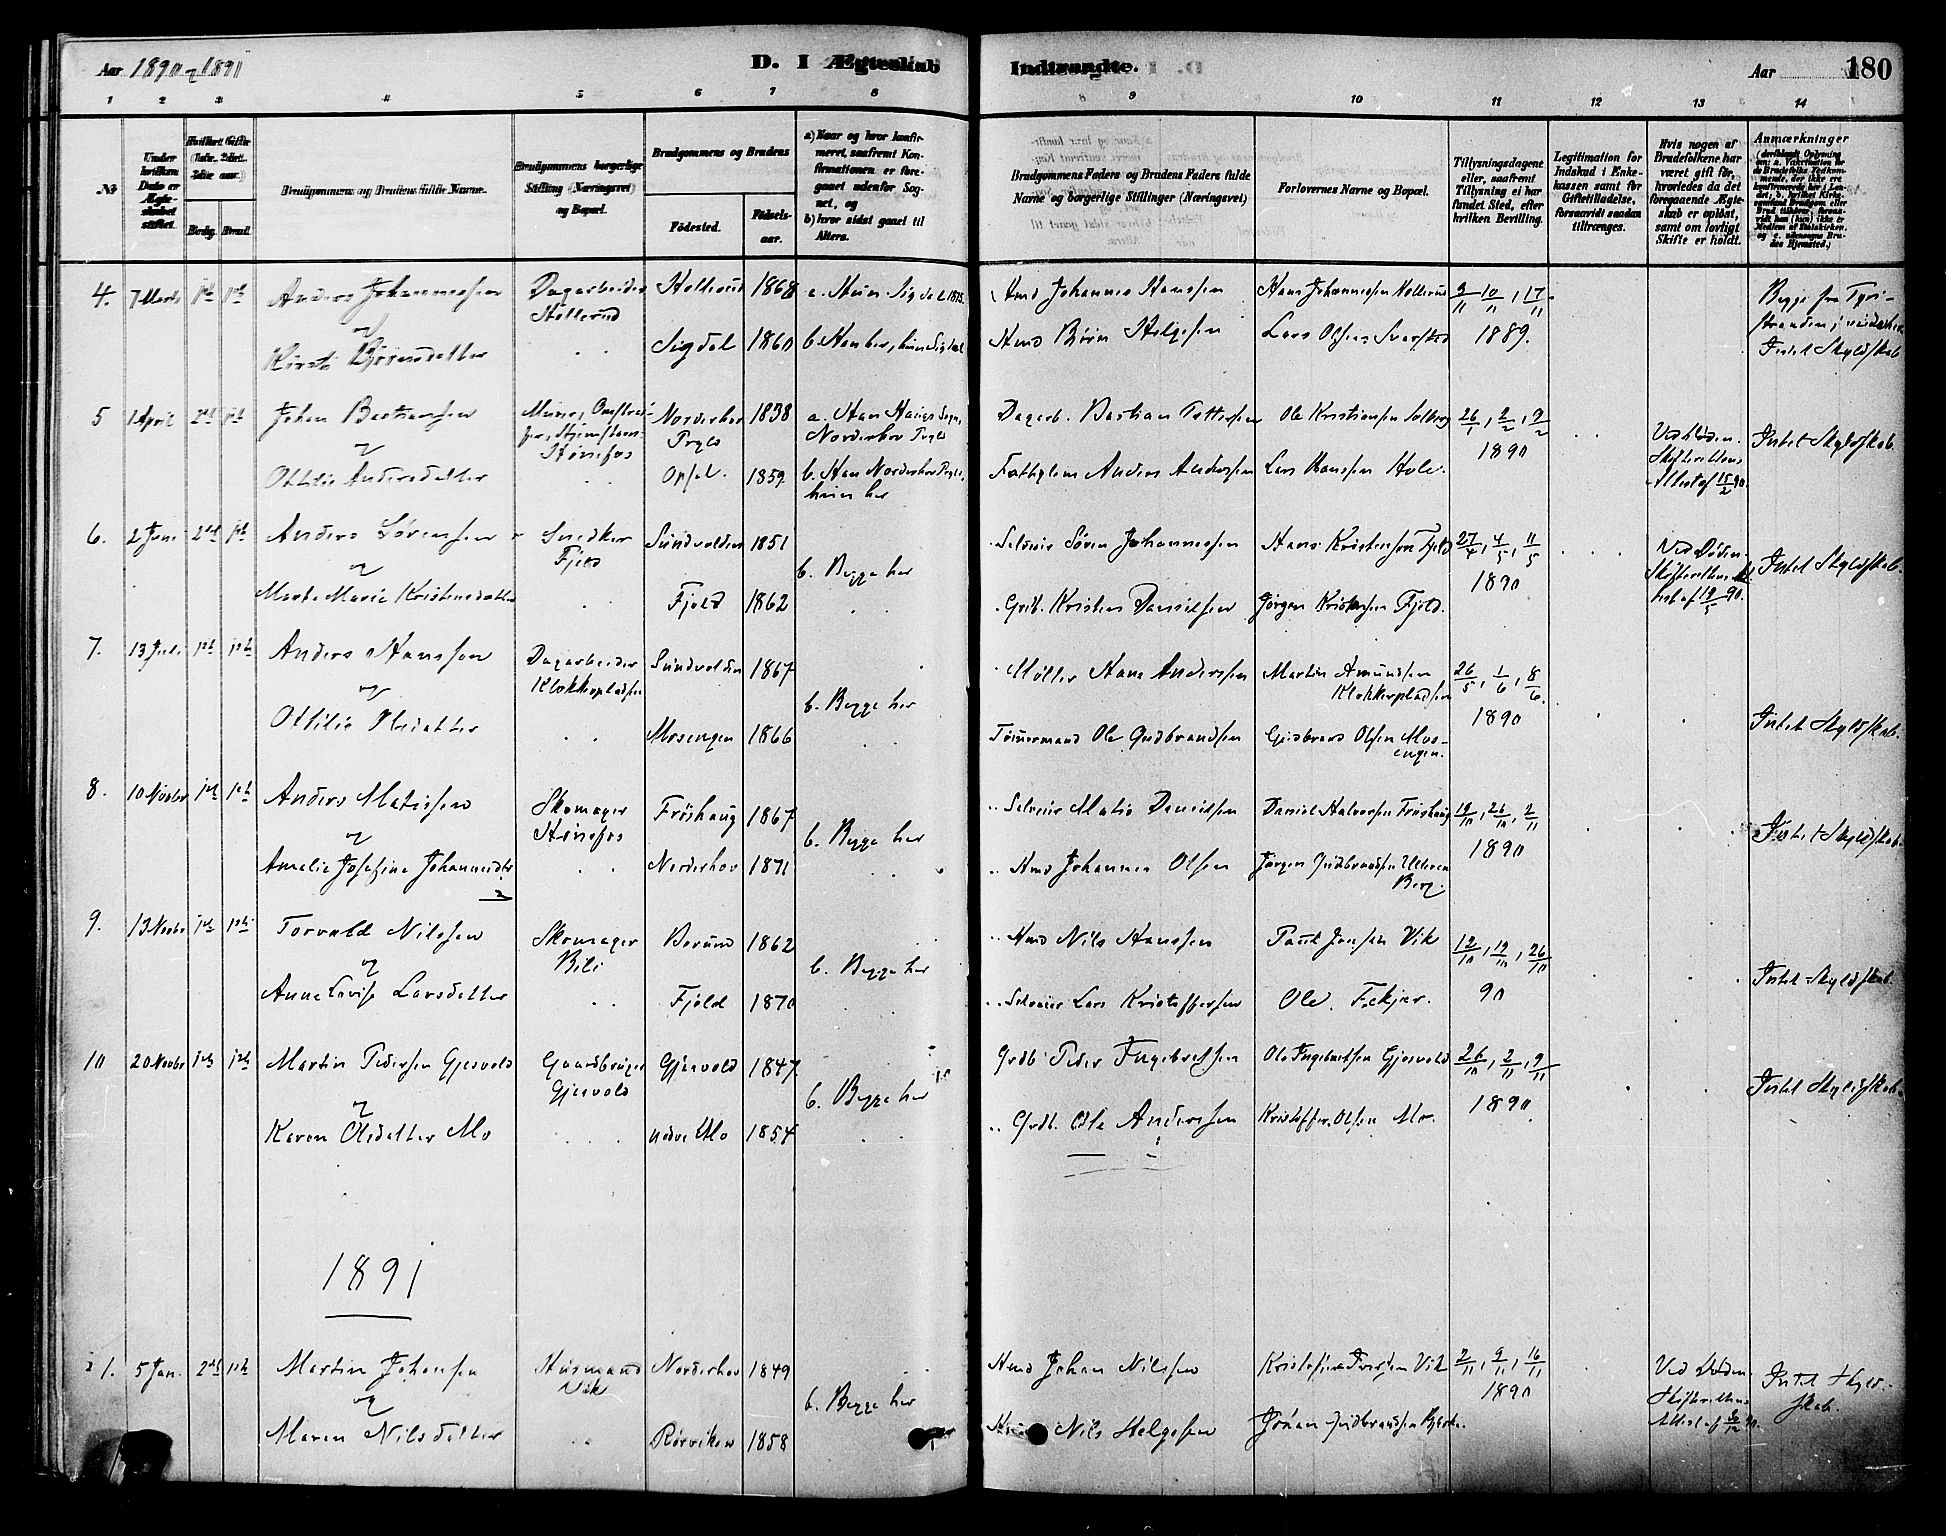 Aar 1890 og 1891
D. I Ægteskab
Indtraadte.
Aar
180
1 2 3 4 5 6 7 8
9 10 11 12 13 14
No
Under hvilken Dato er Ægteskabet stiftet.
Hvilket Gifte (1ste, 2det, 3die osv.)
Brudg. Brud.
Brudgommens og Brudens fulde Navne.
Brudgommens borgerlige Stilling (Næringsvei) og Bopæl.
Brudgommens og Brudens
Fødested.
Fødselsaar.
a) Naar og hvor konfirmeret, saafremt Konfirmationen er foregaaet udenfor Sognet, og
b) hvor sidst gaaet til Alters.
Brudgommens Faders og Brudens Faders fulde Navne og borgerlige Stillinger (Næringsvei)
Forlovernes Navne og Bopæl.
Tillysningsdagene eller, saafremt Tillysning ei har fundet Sted, efter hvilken Bevilling.
Legitimation for Indskud i Enkekassen samt for Giftetilladelse, forsaavidt saadan tiltrænges.
Hvis nogen af Brudefolkene har været gift før, hvorledes da det foregaaende Ægteskab er opløst, samt om lovligt Skifte er holdt.
Anmærkninger
4. 7 Marts 1ste 1ste Anders Johannessen Dagarbeider Hollerud Hollerud 1868 a. Hun Sigdal 1875. Hmd Johannes Hanssen Hans Johannessen Hollerud 3/11, 10/11, 17/11 1889. Begge fra Tyristranden; Intet Skyldskab
og
Kirsti Bjørnsdatter Sigdal 1860 b. Han her, hun Sigdal Hmd Bjørn Helgesen Lars Olsen
5 1 April 2det 1ste Johan Bastiansen Hønefos Norderhov Prgld 1838 a. Han Haugs Sogn, Norderhov Prgld Dagarb. Bastian Pettersen Ole Kristiansen Solberg 26/1, 2/2, 9/2 1890 Ved Døden. Skifterettens Attest af 15/2 90. Intet Skyldskab.
og
Ottilie Andersdatter Opsal. 1859 b. Han Norderhov Prgld, hun her Fattiglem Anders Andersen Lars Hanssen Hole.
6. 2 Juni 2det 1ste Anders Sørensen Snedker Fjeld Sundvolden 1851 b. Begge her Selveier Søren Johannessen Hans Kristensen Fjeld 27/4, 4/5, 11/5 1890 Ved Døden. Skifterettens Attest af 19/5 90. Intet Skyldskab.
og
Marte Marie Kristensdatter Fjeld 1862 Grdb. Kristen Danielsen Jørgen Kristensen Fjeld.
7. 13 Juli 1ste 1ste Anders Hanssen Dagarbeider Klokkerpladsen Sundvolden 1867 b. Begge her Møller Hans Anderssen Martin Amundsen Klokkerpladsen 26/5, 1/6, 8/6. 1890 Intet Skyldskab.
og
Ottilie Olsdatter Mosengen 1866 Tømmermand Ole Gudbrandsen Gudbrand Olsen Mosengen.
8. 10 Novbr 1ste 1ste Anders Matissen Skomager Hønefos Frøshaug 1867 b. Begge her Selveier Matis Danielsen Daniel Halvorsen Frøshaug 19/10, 26/10, 2/11 1890 Intet Skyldskab.
og
Amelie Josefine Johannesdtr Norderhov 1871 Hmd Johannes Olsen Jørgen Gudbrandsen Ulleren Berg.
9. 13 Novbr 1ste 1ste Torvald Nilssen Skomager Bili Berum 1862 b. Begge her Hmd Nils Hanssen Paul Jensen Vik 12/10, 19/10, 26/10 90 Intet Skyldskab.
og
Anne Lovise Larsdatter Fjeld 1870 Selveier Lars Kristoffersen Ole Fekjær.
10 20 Novbr 1ste 1ste Martin Pedersen Gjesvold Gaardbruger Gjesvold Gjesvold 1847 b. Begge her Grdb Peder Ingebretsen Ole Ingebretsen Gjesvold 26/10, 2/11, 9/11 1890. Intet Skyldskab.
og
Karen Olsdatter Mo nedre Mo 1854 Grdb. Ole Anderssen Kristoffer Olsen Mo.
1891
1. 5 Jan. 2det 1ste Martin Johansen Husmand Vik Norderhov 1849 b. Begge her Hmd Johan Nilssen Kristofer Iversen Vik 2/11, 9/11, 16/11 1890 Ved Døden Skifterettens Attest af 6/12 90. Intet Skyldskab.
og
Maren Nilsdatter Rørviken 1858 Nils Helgesen Johan Gudbrandsen